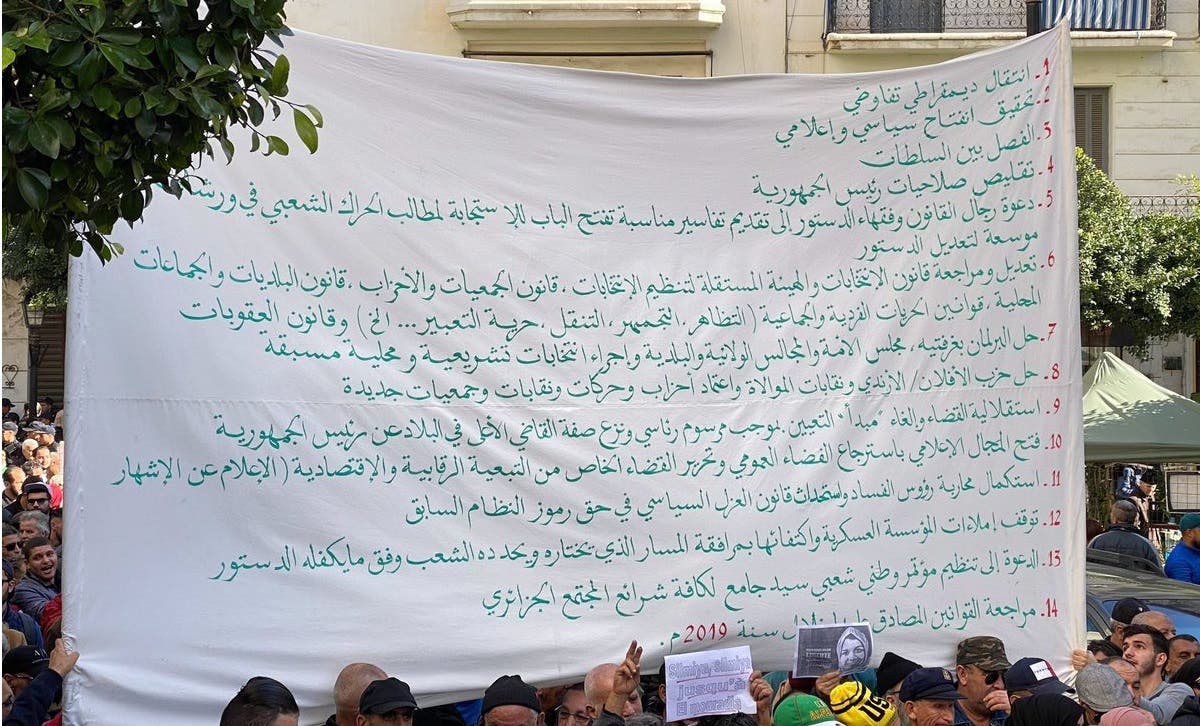 1. انتقال ديمقراطي تفاوضي
2. تحقيق انفتاح سياسي وإعلامي
3. الفصل بين السلطات
4. تقليص صلاحيات رئيس الجمهورية
5. دعوة رجال القانون وفقهاء الدستور إلى تقديم تفاسير مناسبة تفتح الباب للإستجابة لمطالب الحراك الشعبي في
موسعة لتعديل الدستور
6. تعديل ومراجعة قانون الإنتخابات والهيئة المستقلة لتنظيم الإنتخابات ، قانون الجمعيات والأحزاب ، قانون البلديات والجماعات
المحلية ، قوانين الحريات الفردية والجماعية ( التظاهر ، التجمهر ، التنقل ، حرية التعبير... الخ ) وقانون العقوبات
7. حل البرلمان بغرفتيه ، مجلس الأمة والمجالس الولائية والبلدية وإجراء انتخابات تشريعية و محلية مسبقة
8. حل حزب الأفلان / الأرندي ونقابات الموالاة واعتماد أحزاب وحركات ونقابات وجمعيات جديدة
9. استقلالية القضاء وإلغاء "مبدأ" التعيين بموجب مرسوم رئاسي ونزع صفة القاضي الأعلى في البلاد عن رئيس الجمهورية
10. فتح المجال الإعلامي باسترجاع الفضاء العمومي وتحرير الفضاء الخاص من التبعية الرقابية والإقتصادية ( الإعلام عن الإشهار
11. استكمال محاربة رؤوس الفساد واستحداث قانون العزل السياسي في حق رموز النظام السابق
12. توقف إملاءات المؤسسة العسكرية واكتفائها بمرافقة المسار الذي يختاره ويحدده الشعب وفق مايكفله الدستور
13. الدعوة إلى تنظيم مؤتمر وطني شعبي سيد جامع لكافة شرائع المجتمع الجزائري
14. مراجعة القوانين المصادق سنة 2019 م.
Silmiya, Silmiya
jusqu'à
El mouradia
LIBERTE